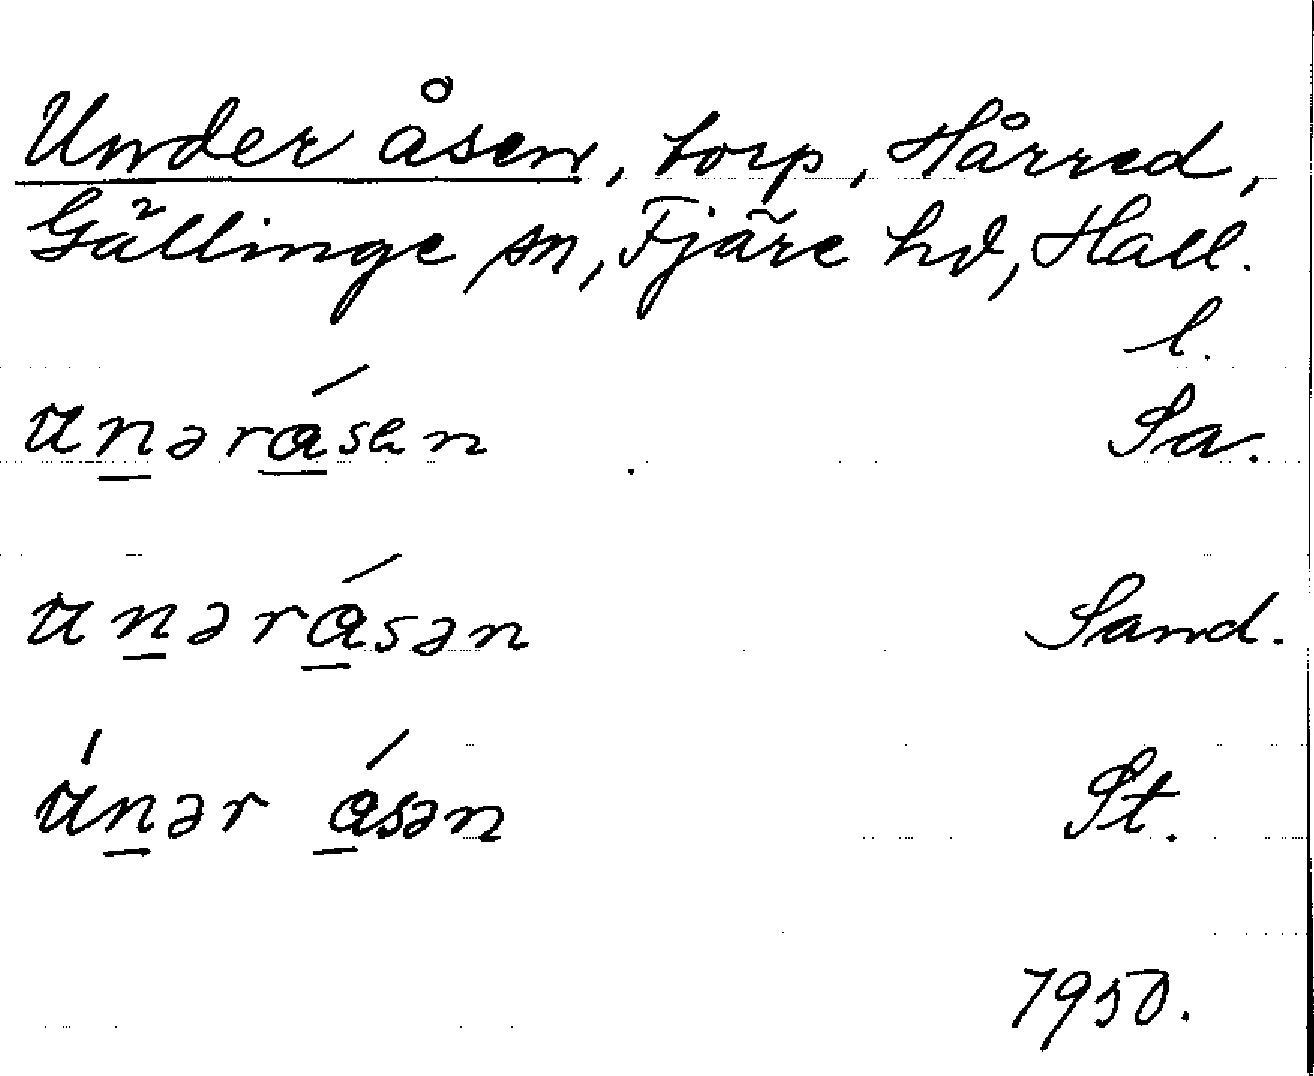 Under åsen, torp, Hårred,
Gällinge sn, Fjäre hd, Hall.
l.
unərásen Sa.
unərásən Sand.
únər ásən St.
1950.